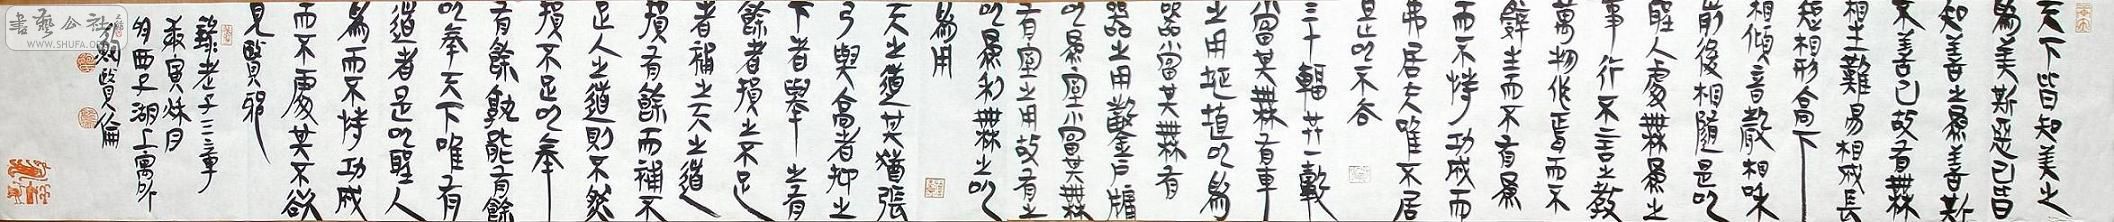 天下皆知美之
為美斯惡已皆
知善之為善斯
不善已故有無
相生難易相成長
短相形高下
相傾音聲相和
前後相隨是以
聖人處無為之
事行不言之教
萬物作焉而不
辭生而不有為
而不恃功成而
弗居夫唯不居
是以不去
三十輻共一轂
當其無有車
之用埏埴以為
器當其無有
器之用鑿戶牖
以為室當其無
有室之用故有之
以為利無之以
為用
天之道其猶張
弓與高者抑之
下者舉之有
餘者損之不足
者補之天之道
損有餘而補不
足人之道則不然
損不足以奉
有餘孰能有餘
以奉天下唯有
道者是以聖人
為而不恃功成
而不處其不欲
見賢邪
錄老子三章
庚寅秋月
於西子湖上寓所
鮑賢倫
書藝公社
WWW.SHUFA.ORG